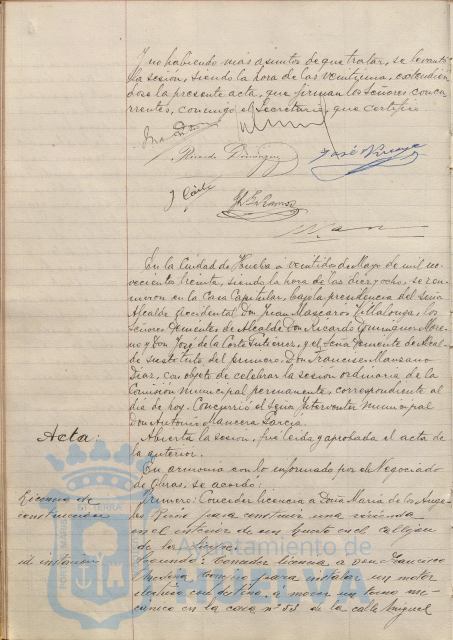 Y no habiendo más asuntos de que tratar, se levantó
la sesión, siendo la hora de las veintiuna, extendién
dose la presente acta, que firman los Señores concu
rrentes, conmigo el Secretario, que certifico
Ricardo Domínguez
José
En la Ciudad de Huelva a veintidos de Mayo de mil no-
vecientos treinta, siendo la hora de las diez y ocho, se reu-
nieron en la Casa Capitular, bajo la presidencia del Señor
Alcalde accidental Don Juan Mascarós Villalonga, los
Señores Tenientes de Alcalde Don Ricardo Domínguez More-
no y Don José de la Corte Gutierrez, y el Señor Teniente de Alcal-
de sustituto del primero Don Francisco Manzano
Díaz, con objeto de celebrar la sesión ordinaria de la
Comisión Municipal permanente, correspondiente al
día de hoy. Concurrió el Señor Interventor Municipal
Don Antonio Mancera García.
Acta: Abierta la sesión, fué leída y aprobada el acta de
la anterior.
En armonía con lo informado por el Negociado
de Obras, se acordó:
Licencia de construcción
Primero: Conceder licencia a Doña María de los Ange-
les para construir una vivienda
en el interior de un huerto en el callejón
de
id instalación
Segundo: Conceder licencia a Don Francisco
para instalar un motor
eléctrico con destino a mover un torno me-
cánico en la casa nº 53 de la calle Miguel
Ayuntamiento de
HUELVA